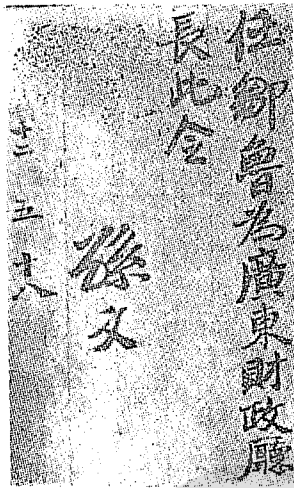 任鄒魯為廣東財政廳
長此令
孫文
十二 五 十八